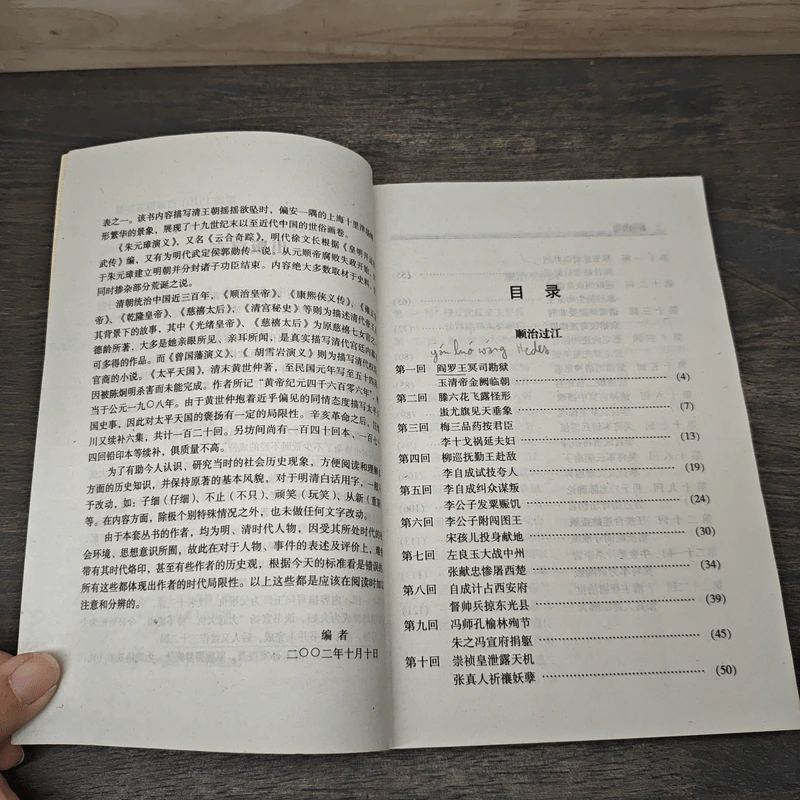 表之一。该书内容描写清王朝摇摇欲坠时，偏安一隅的上海十里洋场畸
形繁华的景象，展现了十九世纪末以至近代中国的世俗画卷。
《朱元璋演义》，又名《云合奇踪》，明代徐文长根据《皇明开运
武传》编，又有为明代武定侯郭勋传一说。从元顺帝腐败失政开始，
于朱元璋建立明朝并分封诸子功臣结束。内容绝大多数取材于史料，
同时掺杂部分荒诞之说。
清朝统治中国近三百年，《顺治皇帝》、《康熙侠义传》、《雍正
帝》、《乾隆皇帝》、《慈禧太后》、《清宫秘史》等则为描述清代帝王
其背景下的故事，其中《光绪皇帝》、《慈禧太后》为原慈禧七女官之
德龄所著，大多是她亲眼所见、亲耳所闻，是真实描写清代宫廷内幕
可多得的作品。而《曾国藩演义》、《 胡雪岩演义》则为描写清代
官商的小说。《太平天国》，清末黄世仲著，至民国元年写至五十四回
因被陈炯明杀害而未能完成。作者所记“黄帝纪元四千六百零六年”，
当于公元一九〇八年。由于黄世仲抱着近乎偏见的同情态度描写太平
国史事，因此对太平天国的褒扬有一定的局限性。辛亥革命之后，
川又续补六集，共计一百二十回。另坊间尚有一百四十回本、一百七
四回铅印本等续补，俱质量不高。
为了有助今人认识、研究当时的社会历史现象，方便阅读和理解
方面的历史知识，并保持原著的基本风貌，对于明清白话用字，一般
予改动，如：子细（仔细）、不止（不只）、顽笑（玩笑）、从新（重新
等。在内容方面，除极个别特殊情况之外，也未做任何文字改动。
由于本套丛书的作者，均为明、清时代人物，因受其所处时代的
会环境、思想意识所囿，故此在对于人物、事件的表述及评价上，难
带有其时代烙印，甚至有些作者的历史观，根据今天的标准看是错误的
所有这些都体现出作者的时代局限性。以上这些都是应该在阅读时加以
注意和分辨的。
编 者
二〇〇二年十月十日
目 录
顺治过江
yán luó wáng Hades
第一回 阎罗王冥司勘狱
玉清帝金阙临朝 (4)
第二回 滕六花飞露怪形
蚩尤旗见天垂象 (7)
第三回 梅三品药按君臣
李十戈祸延夫妇 (13)
第四回 柳巡抚勤王赴敌
李自成试技夸人 (19)
第五回 李自成纠众谋叛
李公子发粟赈饥 (24)
第六回 李公子附闯图王
宋孩儿投身献地 (30)
第七回 左良玉大战中州
张献忠惨屠西楚 (34)
第八回 自成计占西安府
督帅兵掠东光县 (39)
第九回 冯师孔榆林殉节
朱之冯宣府捐躯 (45)
第十回 崇祯皇泄露天机
张真人祈禳妖孽 (50)